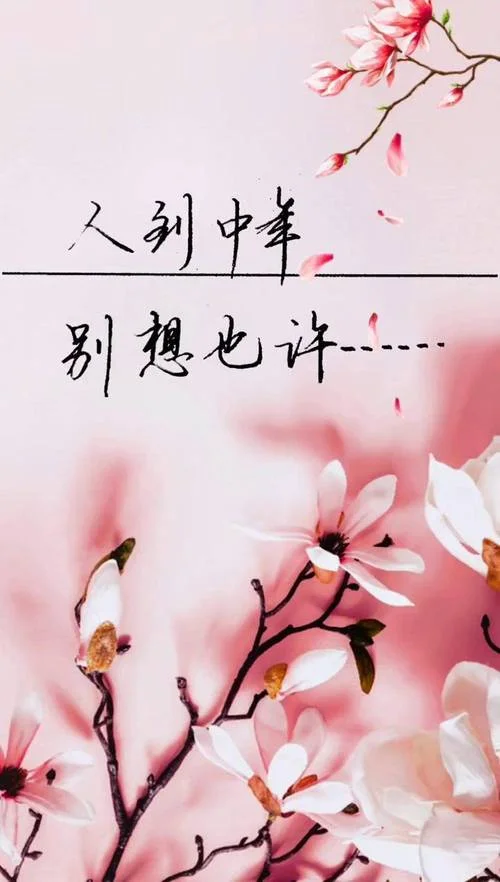 人到中年
别想也许------